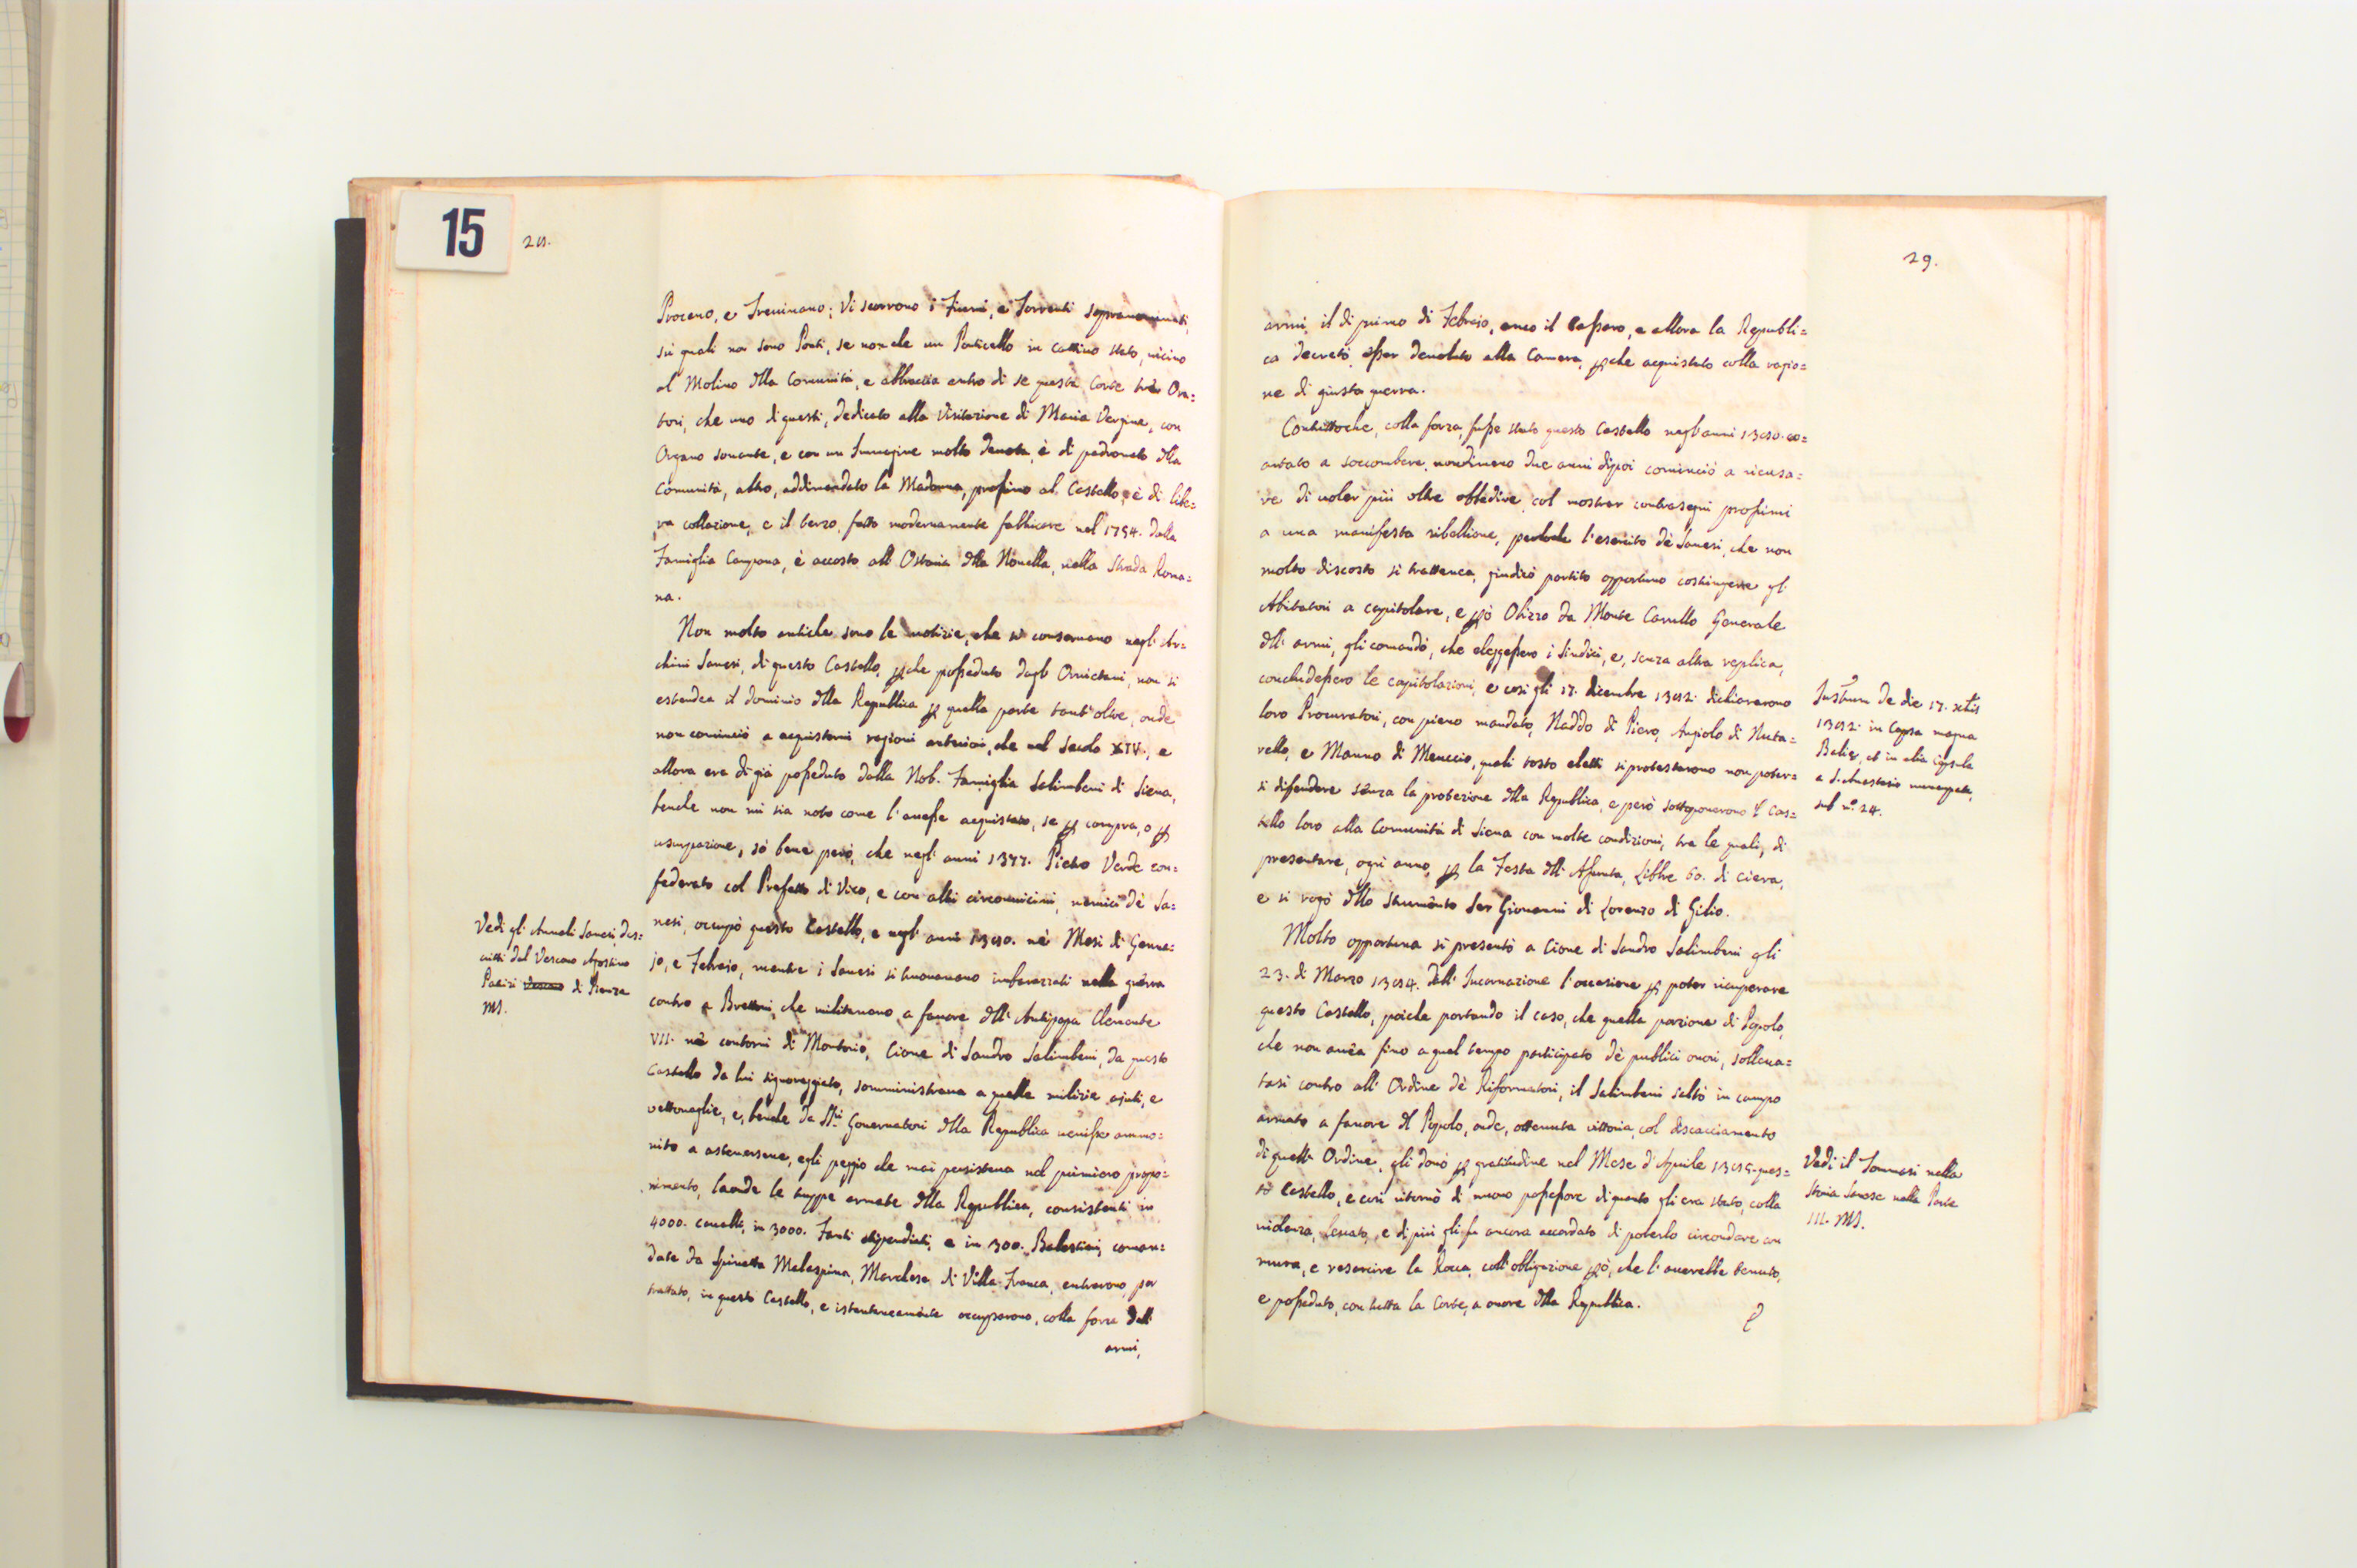 15
28.
Proceno, e Treuinano; Vi scorrono i Fiumi, e Torrenti sopranominati,
sù quali non sono Ponti, se non che un Ponticello in cattiuo stato, uicino
al Molino dlla Comunità, e abbraccia entro di se questa Corte trè Ora=
tori, che uno di questi, dedicato alla Visitazione di Maria Vergine, con
Organo sonante, e con un Immagine molto deuota, è di padronato dlla
Comunità, altro, addimandato la Madonna, prossimo al Castello, è di libe=
ra collazione, e il terzo, fatto modernamente fabbricare nel 1754. dalla
Famiglia Campana, è accosto all' Osteria dlla Nouella, nella Strada Roma=
na.
Non molto antiche sono le notizie, che si conseruano negl' Ar=
chiui Sanesi, di questo Castello, perche posseduto dagl' Oruietani, non si
estendea il dominio dlla Republica per quella parte tant' oltre, onde
non cominciò a acquistarui ragioni anteriori, che nel Secolo XIV., e
allora era di già posseduto dalla Nob. Famiglia Salimbeni di Siena,
benche non mi sia noto come l'auesse acquistato, se per compra, o per
usurpazione, sò bene però, che negl' anni 1377. Pietro Verde con=
federato col Prefetto di Vico, e con altri circonuicini, nemici dè Sa=
nesi, occupò questo Castello, e negl' anni 1380. nè Mesi di Genna=
jo, e Febraio, mentre i Sanesi si trouauano imbarazzati nella guerra
contro a Brettoni, che militauano a fauore dll' Antipapa Clemente
VII. nè contorni di Montorio, Cione di Sandro Salimbeni, da questo
Castello da lui signoreggiato, somministraua a quelle milizie ajuti, e
uettouaglie, e, benche da SSri. Gouernatori dlla Republica uenisse ammo=
nito a astenersene, egli peggio che mai persisteua nel primiero propo=
nimento, laonde le truppe armate dlla Republica, consistenti in
4000. Caualli, in 3000. Fanti stipendiati, e in 300. Balestrieri, coman=
date da Spinetta Malaspina, Marchese di Villa Franca, entrarono per
trattato, in questo Castello, e istantaneamente occuparono, colla forza dell'
armi,
Vedi gl' Annali Sanesi, des=
critti dal Vescouo Agostino
Patrizi Vescouo di Pienza
MS.
29.
armi, il di primo di Febraio, anco il Cassaro, e allora la Republi=
ca decretò esser deuoluto alla Camera, perche acquistato colla ragio=
ne di giusta guerra.
Contuttoche, colla forza, fusse stato questo Castello negl' anni 1380. co=
artato a soccombere, nondimeno due anni dipoi cominciò a ricusa=
re di uoler più oltre obbedire, col mostrar contrasegni prossimi
a una manifesta ribellione, perloche l'esercito dè Sanesi, che non
molto discosto si trattenea, giudicò partito opportuno costringere gl'
Abitatori a capitolare, e però Obizzo da Monte Carullo Generale
dll' armi, gli comandò, che eleggessero i Sindici, e, senza altra replica,
concludessero le capitolazioni, e cosi gli 17. dicembre 1382. dichiararono
loro Procuratori, con pieno mandato, Naddo di Piero, Angiolo di Nuta=
rello, e Manno di Meuccio, quali tosto eletti si protestarono non poter=
si difendere senza la protezione dlla Republica, e però sottoponerono il Cas=
tello loro alla Comunità di Siena con molte condizioni, tra le quali, di
presentare, ogni anno, per la Festa dll' Assunta, Libbre 60. di ciera,
e si rogò dllo strumento Ser Giouanni di Lorenzo di Gilio.
Molto opportuna si presentò a Cione di Sandro Salimbeni gli
23. di Marzo 1384. dall' Incarnazione l'occasione per poter ricuperare
questo Castello, poiche portando il caso, che quella porzione di Popolo,
che non auea fino a quel tempo participato dè publici onori, solleua=
tasi contro all' Ordine dè Riformatori, il Salimbeni saltò in campo
armato a fauore dl Popolo, onde, ottenuta uittoria, col discacciamento
di quell' Ordine, gli donò per gratitudine nel Mese d' Aprile 1385. ques=
to Castello, e cosi ritornò di nuouo possessore di quanto gli era stato, colla
uiolenza, leuato, e di più gli fu ancora accordato di poterlo circondare con
mura, e resarcire la Rocca, coll' obligazione però, che l' auerebbe tenuto,
e posseduto, con tutta la Corte, a onore dlla Republica.
Instrum de die 17. xbris
1382. in Capsa magna
Balie, et in alia Capsula
a S. Anastasio nuncupata,
sub n.° 24.
Vedi il Tommasi nella
Storia Sanese nella Parte
III. MS.